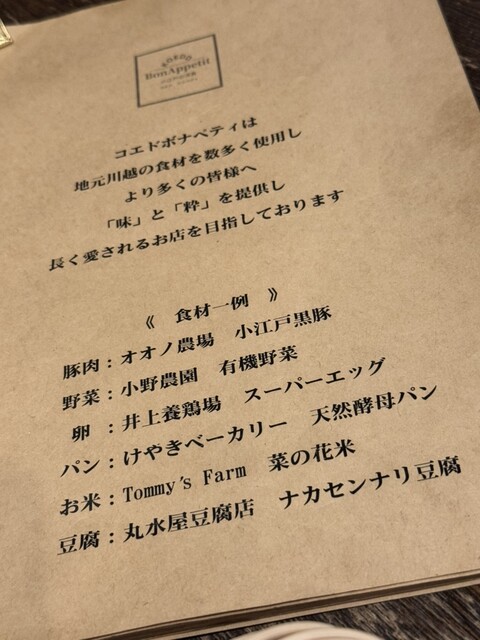 KOEDO
BonAppetit
コエドボナペティは
地元川越の食材を数多く使用し
より多くの皆様へ
「味」と「粋」を提供し
長く愛されるお店を目指しております
《 食材一例 》
豚肉：オオノ農場 小江戸黒豚
野菜：小野農園 有機野菜
卵：井上養鶏場 スーパーエッグ
パン：けやきベーカリー 天然酵母パン
お米：Tommy's Farm 菜の花米
豆腐：丸水屋豆腐店 ナカセンナリ豆腐